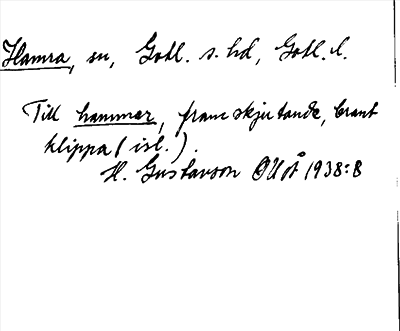 Hamra, sn, Gotl. s. hd, Gotl. l.
Till hammar, framskjutande, brant
klippa (isl.).
H. Gustavson OUÅ 1938:8